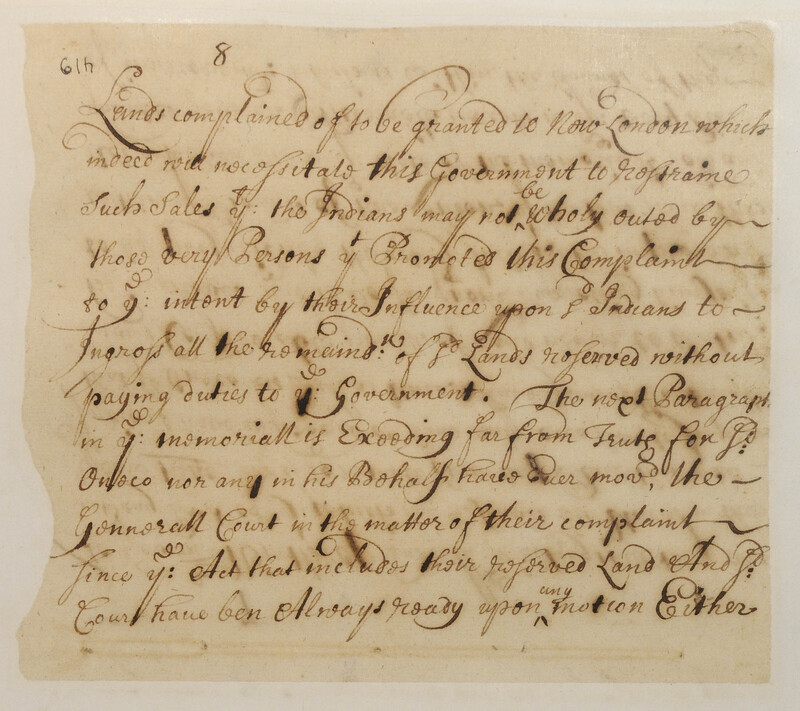 419
8
Lands complained of to be granted to New London which
indeed will necessitate this Government to restraine
Such Sales yt: the Indians may not be wholy outed by
those very Persons yt Promoted this Complaint
to ye: intent by their Influence upon sd Indians to
Ingross all the remaindr: of sd Lands reserved without
paying duties to ye: Government. The next Paragraph
in ye: memoriall is Exeeding far from Truth for sd:
Oneco nor any in his Behalf have Ever movd, the
Gennerall Court in the matter of their complaint
since ye: Act that includes their reserved Land And sd:
Court have ben Always ready upon any motion Either